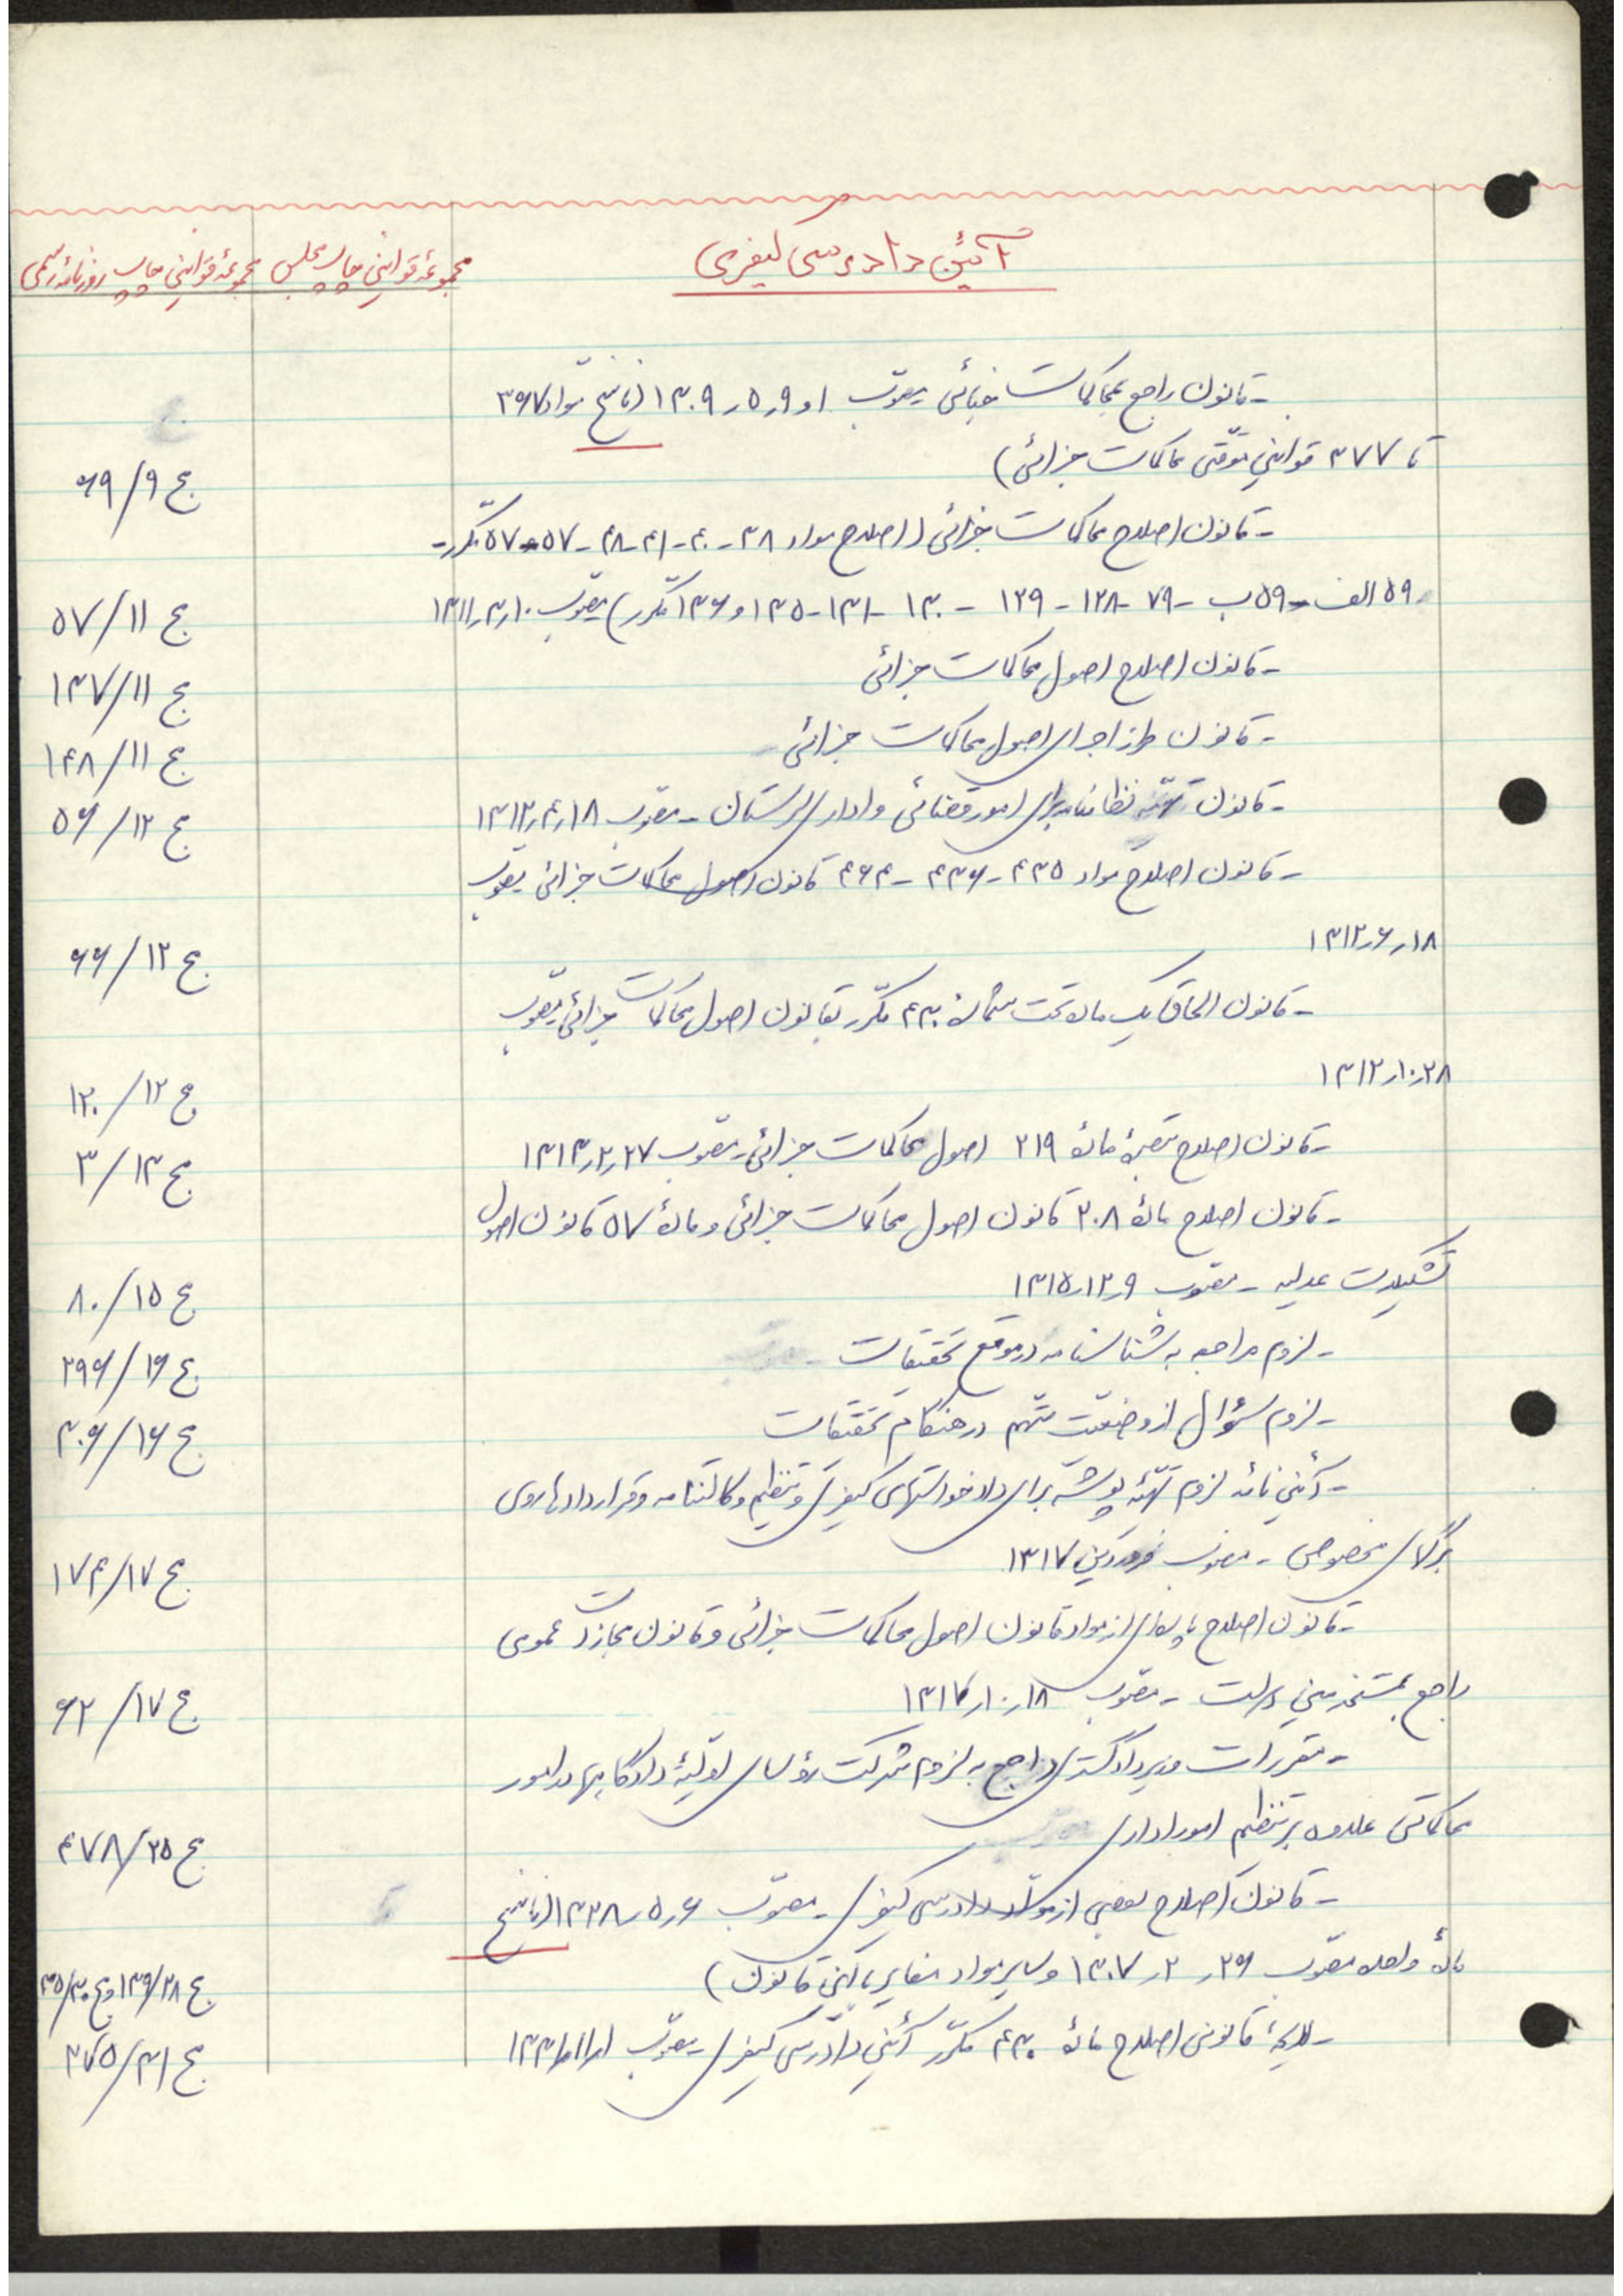 آئین دادرسی کیفری
مجموعهٔ قوانین چاپ مجلس
مجموعهٔ قوانین چاپ روزنامه رسمی
- قانون راجع بمحاکمات جنائی مصوب ۱ و ۹ر۵ر۱۳۰۹ (ناسخ مواد ۳۶۷
تا ۳۷۷ قوانین موقتی محاکمات جزائی)
ج ۹/۶۹
- قانون اصلاح محاکمات جزائی (اصلاح مواد ۳۸-۴۰-۴۱-۴۸-۵۷-۵۷ مکرر-
۵۹ الف - ۵۹ ب - ۷۹-۱۲۸-۱۲۹-۱۳۰-۱۳۱-۱۳۵ و ۱۳۶ مکرر) مصوب ۱۰ر۳ر۱۳۱۱
ج ۱۱/۵۷
- قانون اصلاح اصول محاکمات جزائی
ج ۱۱/۱۳۷
- قانون طرز اجرای اصول محاکمات جزائی
ج ۱۱/۱۴۸
- قانون تهیه نظامنامه برای امور قضائی و اداری لرستان - مصوب ۱۸ر۴ر۱۳۱۲
ج ۱۲/۵۶
- قانون اصلاح مواد ۴۳۵-۴۳۶-۴۶۳ قانون اصول محاکمات جزائی مصوب
۱۸ر۶ر۱۳۱۲
ج ۱۲/۶۶
- قانون الحاق یک ماده تحت شمارهٔ ۴۳۰ مکرر بقانون اصول محاکمات جزائی مصوب
۲۸ر۱۰ر۱۳۱۲
ج ۱۲/۱۲۰
- قانون اصلاح تبصرهٔ مادهٔ ۲۱۹ اصول محاکمات جزائی - مصوب ۲۷ر۲ر۱۳۱۳
ج ۱۳/۳
- قانون اصلاح مادهٔ ۲۰۸ قانون اصول محاکمات جزائی و مادهٔ ۵۷ قانون اصول
تشکیلات عدلیه - مصوب ۹ر۱۲ر۱۳۱۵
ج ۱۵/۸۰
- لزوم مراجعه به شناسنامه در موقع تحقیقات
ج ۱۶/۲۹۶
- لزوم سؤال از وضعیت متهم در هنگام تحقیقات
ج ۱۶/۳۰۶
- آئین نامه لزوم تهیه پوشه برای دادخواستهای کیفری و تنظیم وکالتنامه و قراردادها روی
برگهای مخصوص - مصوب فروردین ۱۳۱۷
ج ۱۷/۱۷۴
- قانون اصلاح پاره‌ای از مواد قانون اصول محاکمات جزائی و قانون مجازات عمومی
راجع بمستخدمین دولت - مصوب ۱۸ر۱۰ر۱۳۱۷
ج ۱۷/۶۲
- مقررات وزیر دادگستری راجع به لزوم شرکت رؤسای اولیهٔ دادگاهها در امور
محاکماتی علاوه بر تنظیم امور اداری
ج ۲۵/۴۷۸
- قانون اصلاح بعضی از مواد دادرسی کیفری - مصوب ۶ر۵ر۱۳۲۸ (ناسخ
مادهٔ واحده مصوب ۲۶ر۲ر۱۳۰۷ و سایر مواد مغایر با این قانون)
ج ۲۸/۱۳۹ و ج ۳۰/۳۵
- لایحهٔ قانونی اصلاح مادهٔ ۴۳۰ مکرر آئین دادرسی کیفری - مصوب ۱ر۱۱ر۱۳۳۱
ج ۳۱/۳۷۵